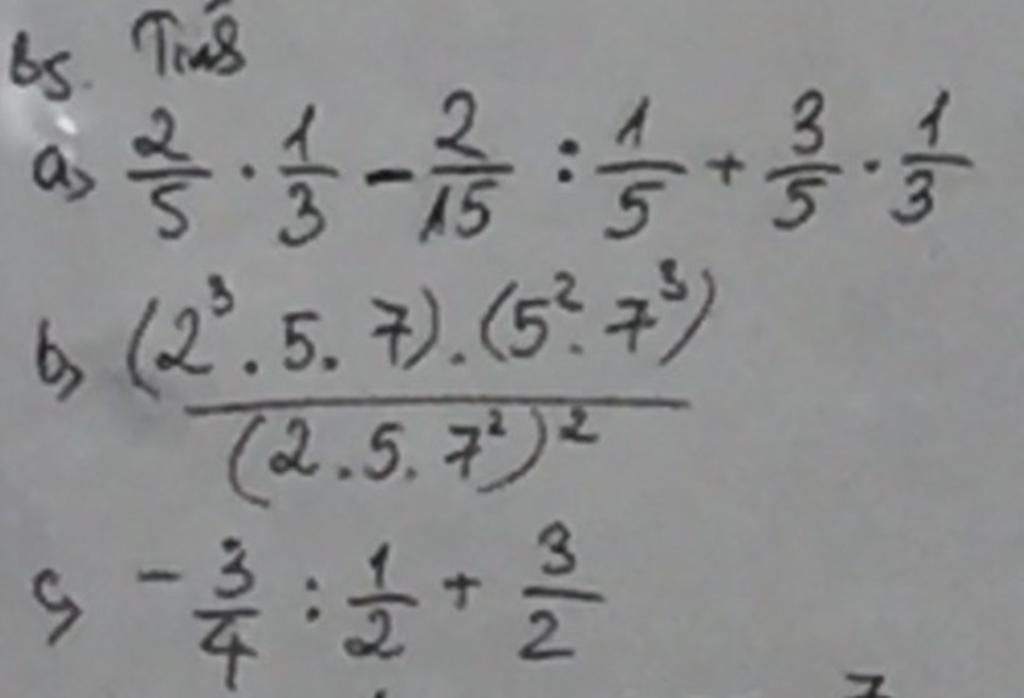 b5. Tính
a, 2/5 . 1/3 - 2/15 : 1/5 + 3/5 . 1/3
b, (2³ . 5 . 7) . (5² . 7³) / (2 . 5 . 7²)²
c, - 3/4 : 1/2 + 3/2
7